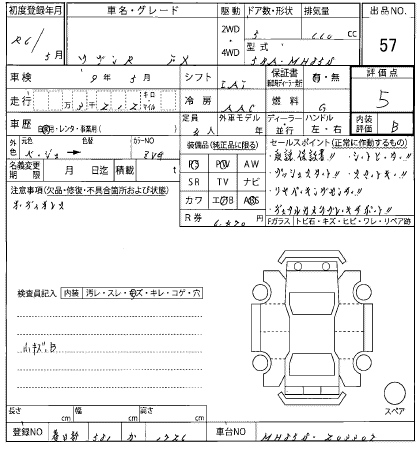 初度登録年月 車名・グレード 駆動 ドア数・形状 排気量 出品NO.
R6/5月 ワゴンR FX 2WD・4WD 5 660 cc 57
型式 5BA-MH85S
車検 9年 5月 シフト IAT 保証書 有・無 評価点
走行 キロ マイル 冷房 AAC 燃料 G 5
車歴 自家用・レンタ・事業用( ) 定員 4人 外車モデル年 ディーラー・並行 ハンドル 左・右 内装評価 B
外色 元色 色替 カラーNO
ベージュ ZVG
名義変更期限 月 日迄 積載 t
装備品(純正品に限る)
PS PW AW
SR TV ナビ
カワ エアB ABS
R券 円
セールスポイント(正常に作動するもの)
・プッシュスタート
・リヤパーキングセンサー
Fガラス・トビ石・キズ・ヒビ・ワレ・リペア跡
注意事項(欠品・修復・不具合箇所および状態)
オーディオレス
検査員記入 内装 汚レ・スレ・キズ・キレ・コゲ・穴
小キズB
スペア
長さ cm 幅 cm 高さ cm
登録NO 春日部 581 か 車台NO MH85S-